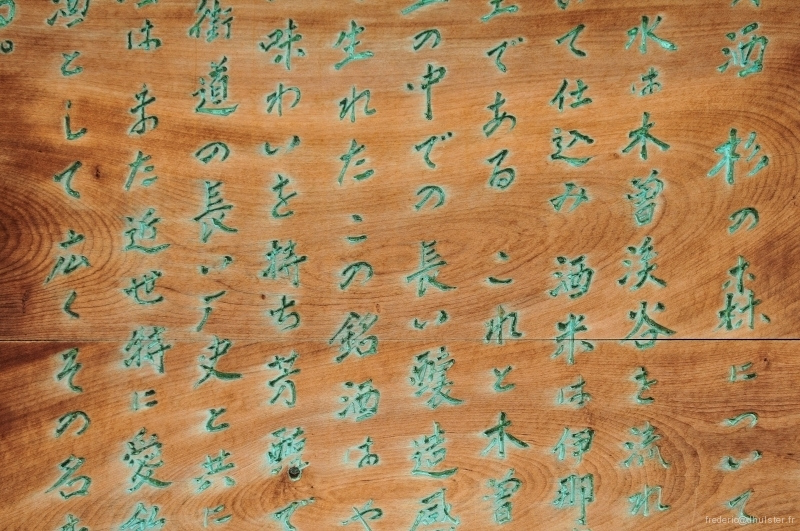 酒 杉の森について
水は木曽渓谷を流れ
て仕込み 酒米は伊那
である これと木曽
の中での長い醸造風
生れたこの銘酒はや
味わいを持ち芳醇で
街道の長い歴史と共に
は来た近世特に愛飲
酒として広くその名
frederic@dhulster.fr